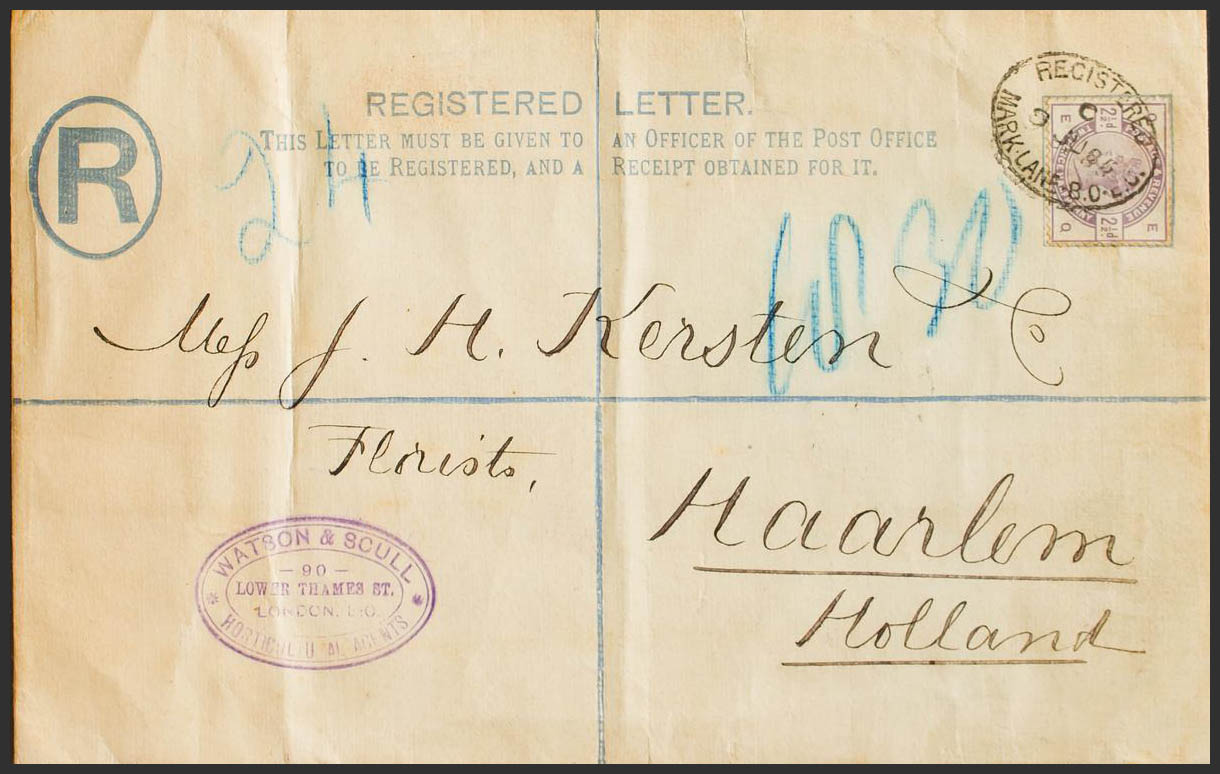 R
REGISTERED LETTER.
THIS LETTER MUST BE GIVEN TO AN OFFICER OF THE POST OFFICE
TO BE REGISTERED, AND A RECEIPT OBTAINED FOR IT.
24
REGISTERED
MARK LANE B.O. E.C.
2½d
E
Q
2½d
E
Mess J. H. Kersten & Co
Florists,
Haarlem
Holland
WATSON & SCULL
- 90 -
LOWER THAMES ST.
LONDON, E.C.
HORTICULTURAL AGENTS